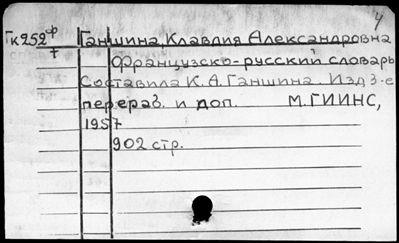 4
Гк252ф Ганшина, Клавдия Александровна
т
Французско-русский словарь
Составила К.А. Ганшина. Изд 3-е
перераб. и доп. М. ГИИНС,
1957
902 стр.